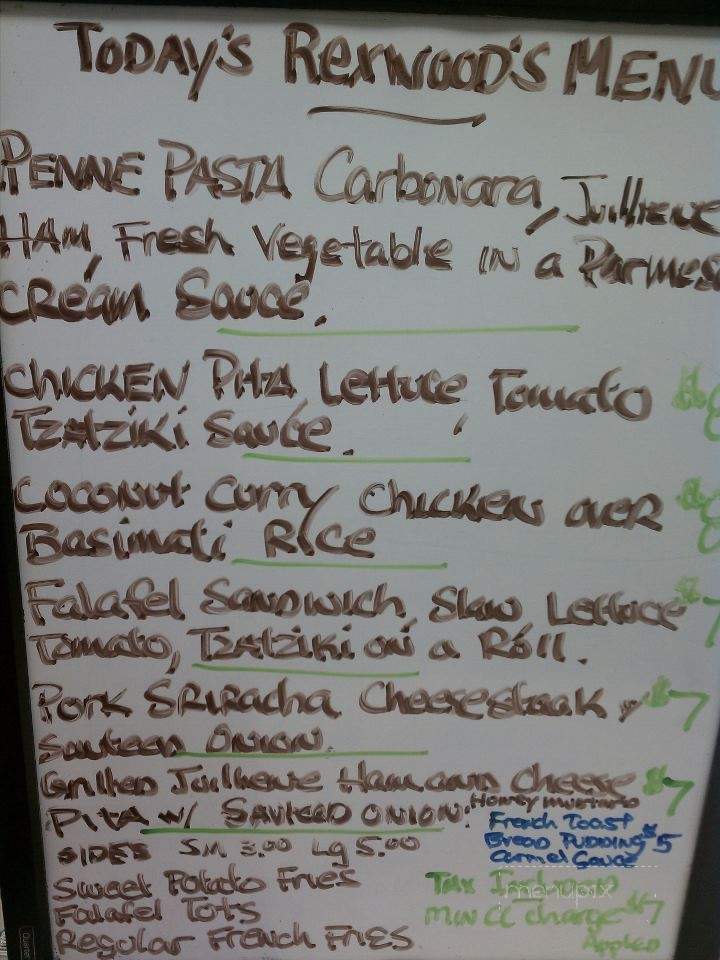 TODAY'S Rexwood's MENU
PENNE PASTA Carbonara, Julliene
HAM, Fresh Vegetable IN a Parmes
CREAM Sauce.
CHICKEN PITA, Lettuce, Tomato
Tzatziki Sauce.
COCONUT Curry CHICKEN OVER
Basimati Rice
Falafel SANDWICH, Slaw Lettuce $7
Tomato, Tzatziki on a Roll.
Pork SRIRACHA Cheesesteak w/ $7
Sauteed ONION.
Grilled Julliene Ham and Cheese $7
PITA w/ SAUTEED ONION. Honey mustard
French Toast
Bread PUDDING $5
Carmel Sauce
SIDES SM 3.00 Lg 5.00
Sweet Potato Fries
Falafel Tots
Regular French Fries
Tax Included
MIN CC charge $7
Applied
menupix
Quartet